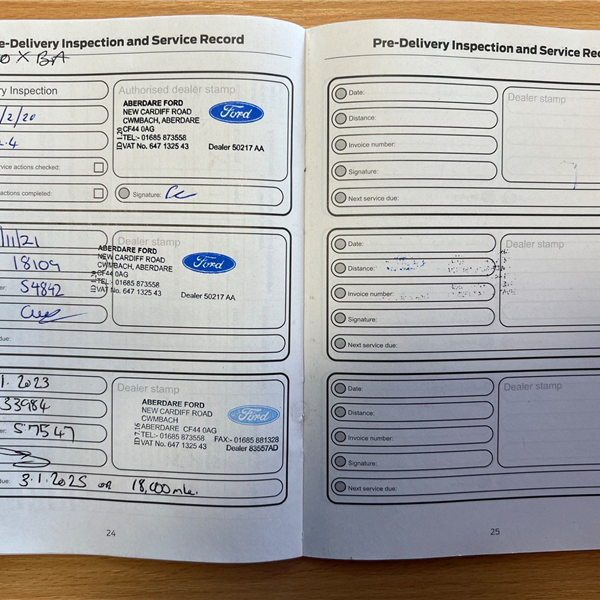 e-Delivery Inspection and Service Record
O X BA
ry Inspection
/2/20
.4
rvice actions checked:
actions completed:
Authorised dealer stamp
ABERDARE FORD
NEW CARDIFF ROAD
CWMBACH, ABERDARE
CF44 0AG
TEL:- 01685 873558
VAT No. 647 1325 43
Dealer 50217 AA
ID 1.20
Ford
Signature:
/11/21
18109
er: 54842
due:
Dealer stamp
ABERDARE FORD
NEW CARDIFF ROAD
CWMBACH, ABERDARE
CF44 0AG
TEL:- 01685 873558
VAT No. 647 1325 43
Dealer 50217 AA
Ford
1. 2023
33984
er: 57547
due: 3.1.2025 or 18,000 mls.
Dealer stamp
ABERDARE FORD
NEW CARDIFF ROAD
CWMBACH
ABERDARE CF44 0AG
TEL:- 01685 873558 FAX:- 01685 881328
VAT No. 647 1325 43 Dealer 83557AD
ID 7.16
Ford
24
Pre-Delivery Inspection and Service Rec
Date:
Distance:
Invoice number:
Signature:
Next service due:
Dealer stamp
Date:
Distance:
Invoice number:
Signature:
Next service due:
Dealer stamp
Date:
Distance:
Invoice number:
Signature:
Next service due:
Dealer stamp
25